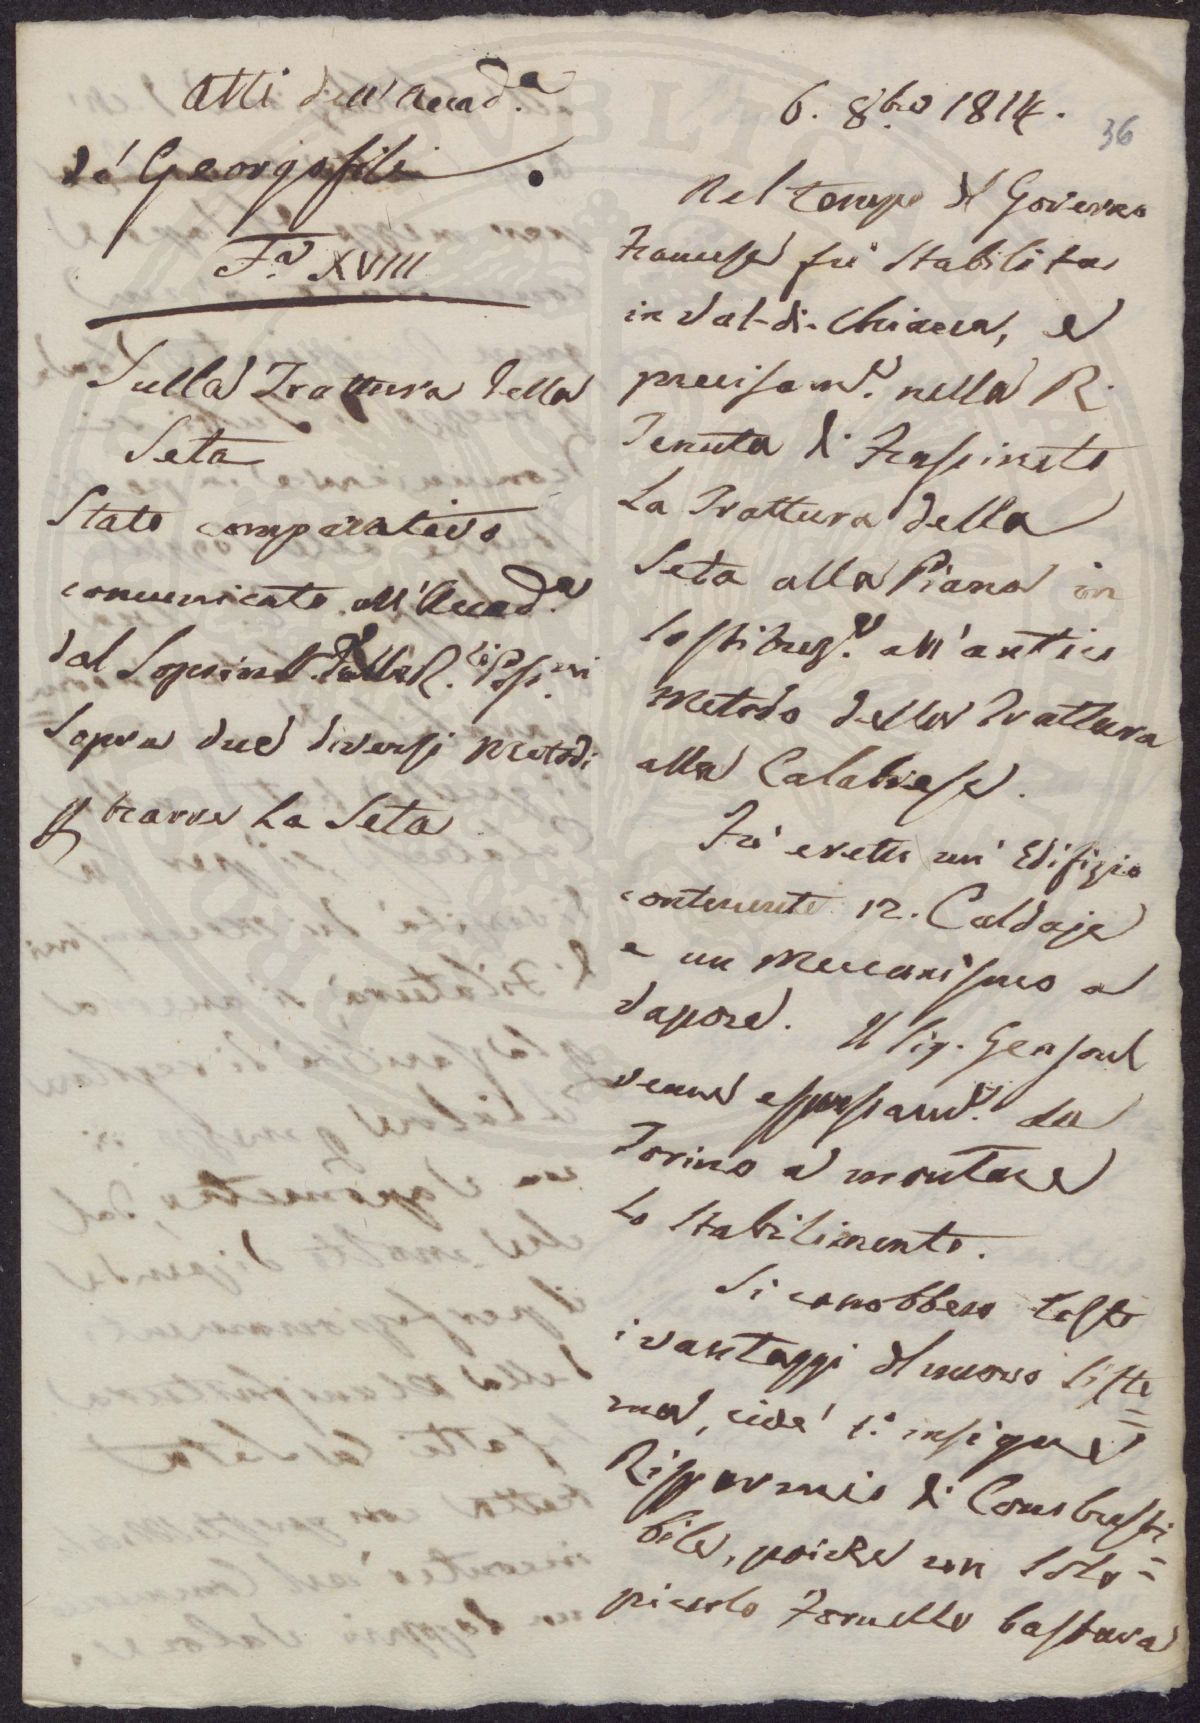 Atti dell'Accad.a
de' Georgofili
F.a XVIII
Sulla Trattura della
Seta
Stato comparativo
comunicato all'Accad.a
dal Soprint.e R.
Sopra due diversi metodi
trarre La Seta
6. 8bre 1814.
36
Nel tempo del Governo
Francese fù stabilita
in Val-di-Chiana, e
precisam.e nella R.
Tenuta di Frassineto
La Trattura della
Seta alla Piana in
sostituz.e all'antico
metodo della Trattura
alla Calabrese.
Fù eretto un' Edifizio
contenente 12. Caldaje
e un Meccanismo a
Vapore. Il Sig. Gensoul
venne espressam.e da
Torino a montare
Lo Stabilimento.
Si conobbero tosto
i vantaggi del nuovo Siste=
ma, cioè l'insigne
Risparmio di Combusti=
bile, poiche un solo
piccolo Fornello bastava